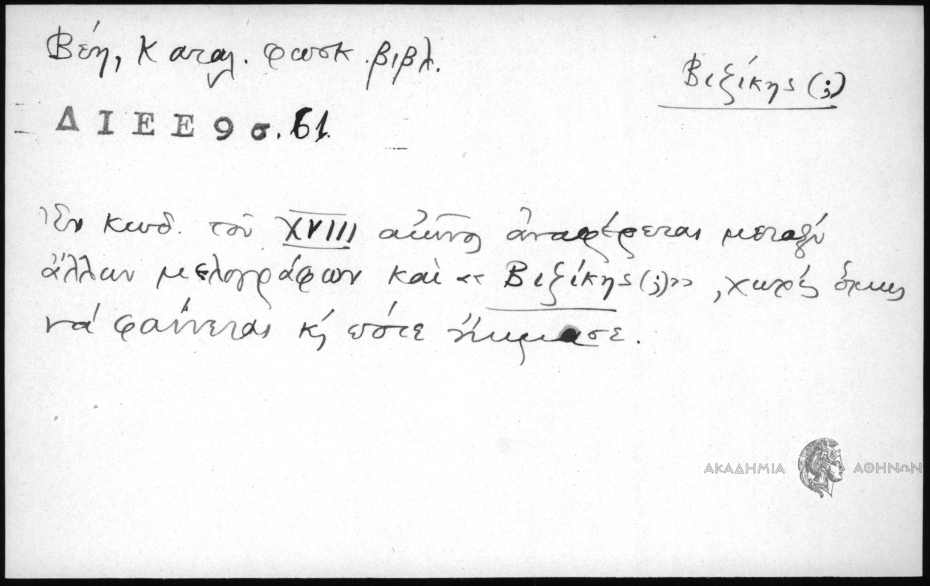 Βέη, Καταλ. φωσκ. βιβλ.
Βιζίκης (;)
ΔΙΕΕ 9 σ. 61.
Ἐν κωδ. τοῦ XVIII αἰῶνος ἀναφέρεται μεταξὺ
ἄλλων μελογράφων καὶ « Βιζίκης (;)», χωρὶς ὅμως
νὰ φαίνεται κ̣ πότε ἤκμασε.
ΑΚΑΔΗΜΙΑ ΑΘΗΝΩΝ